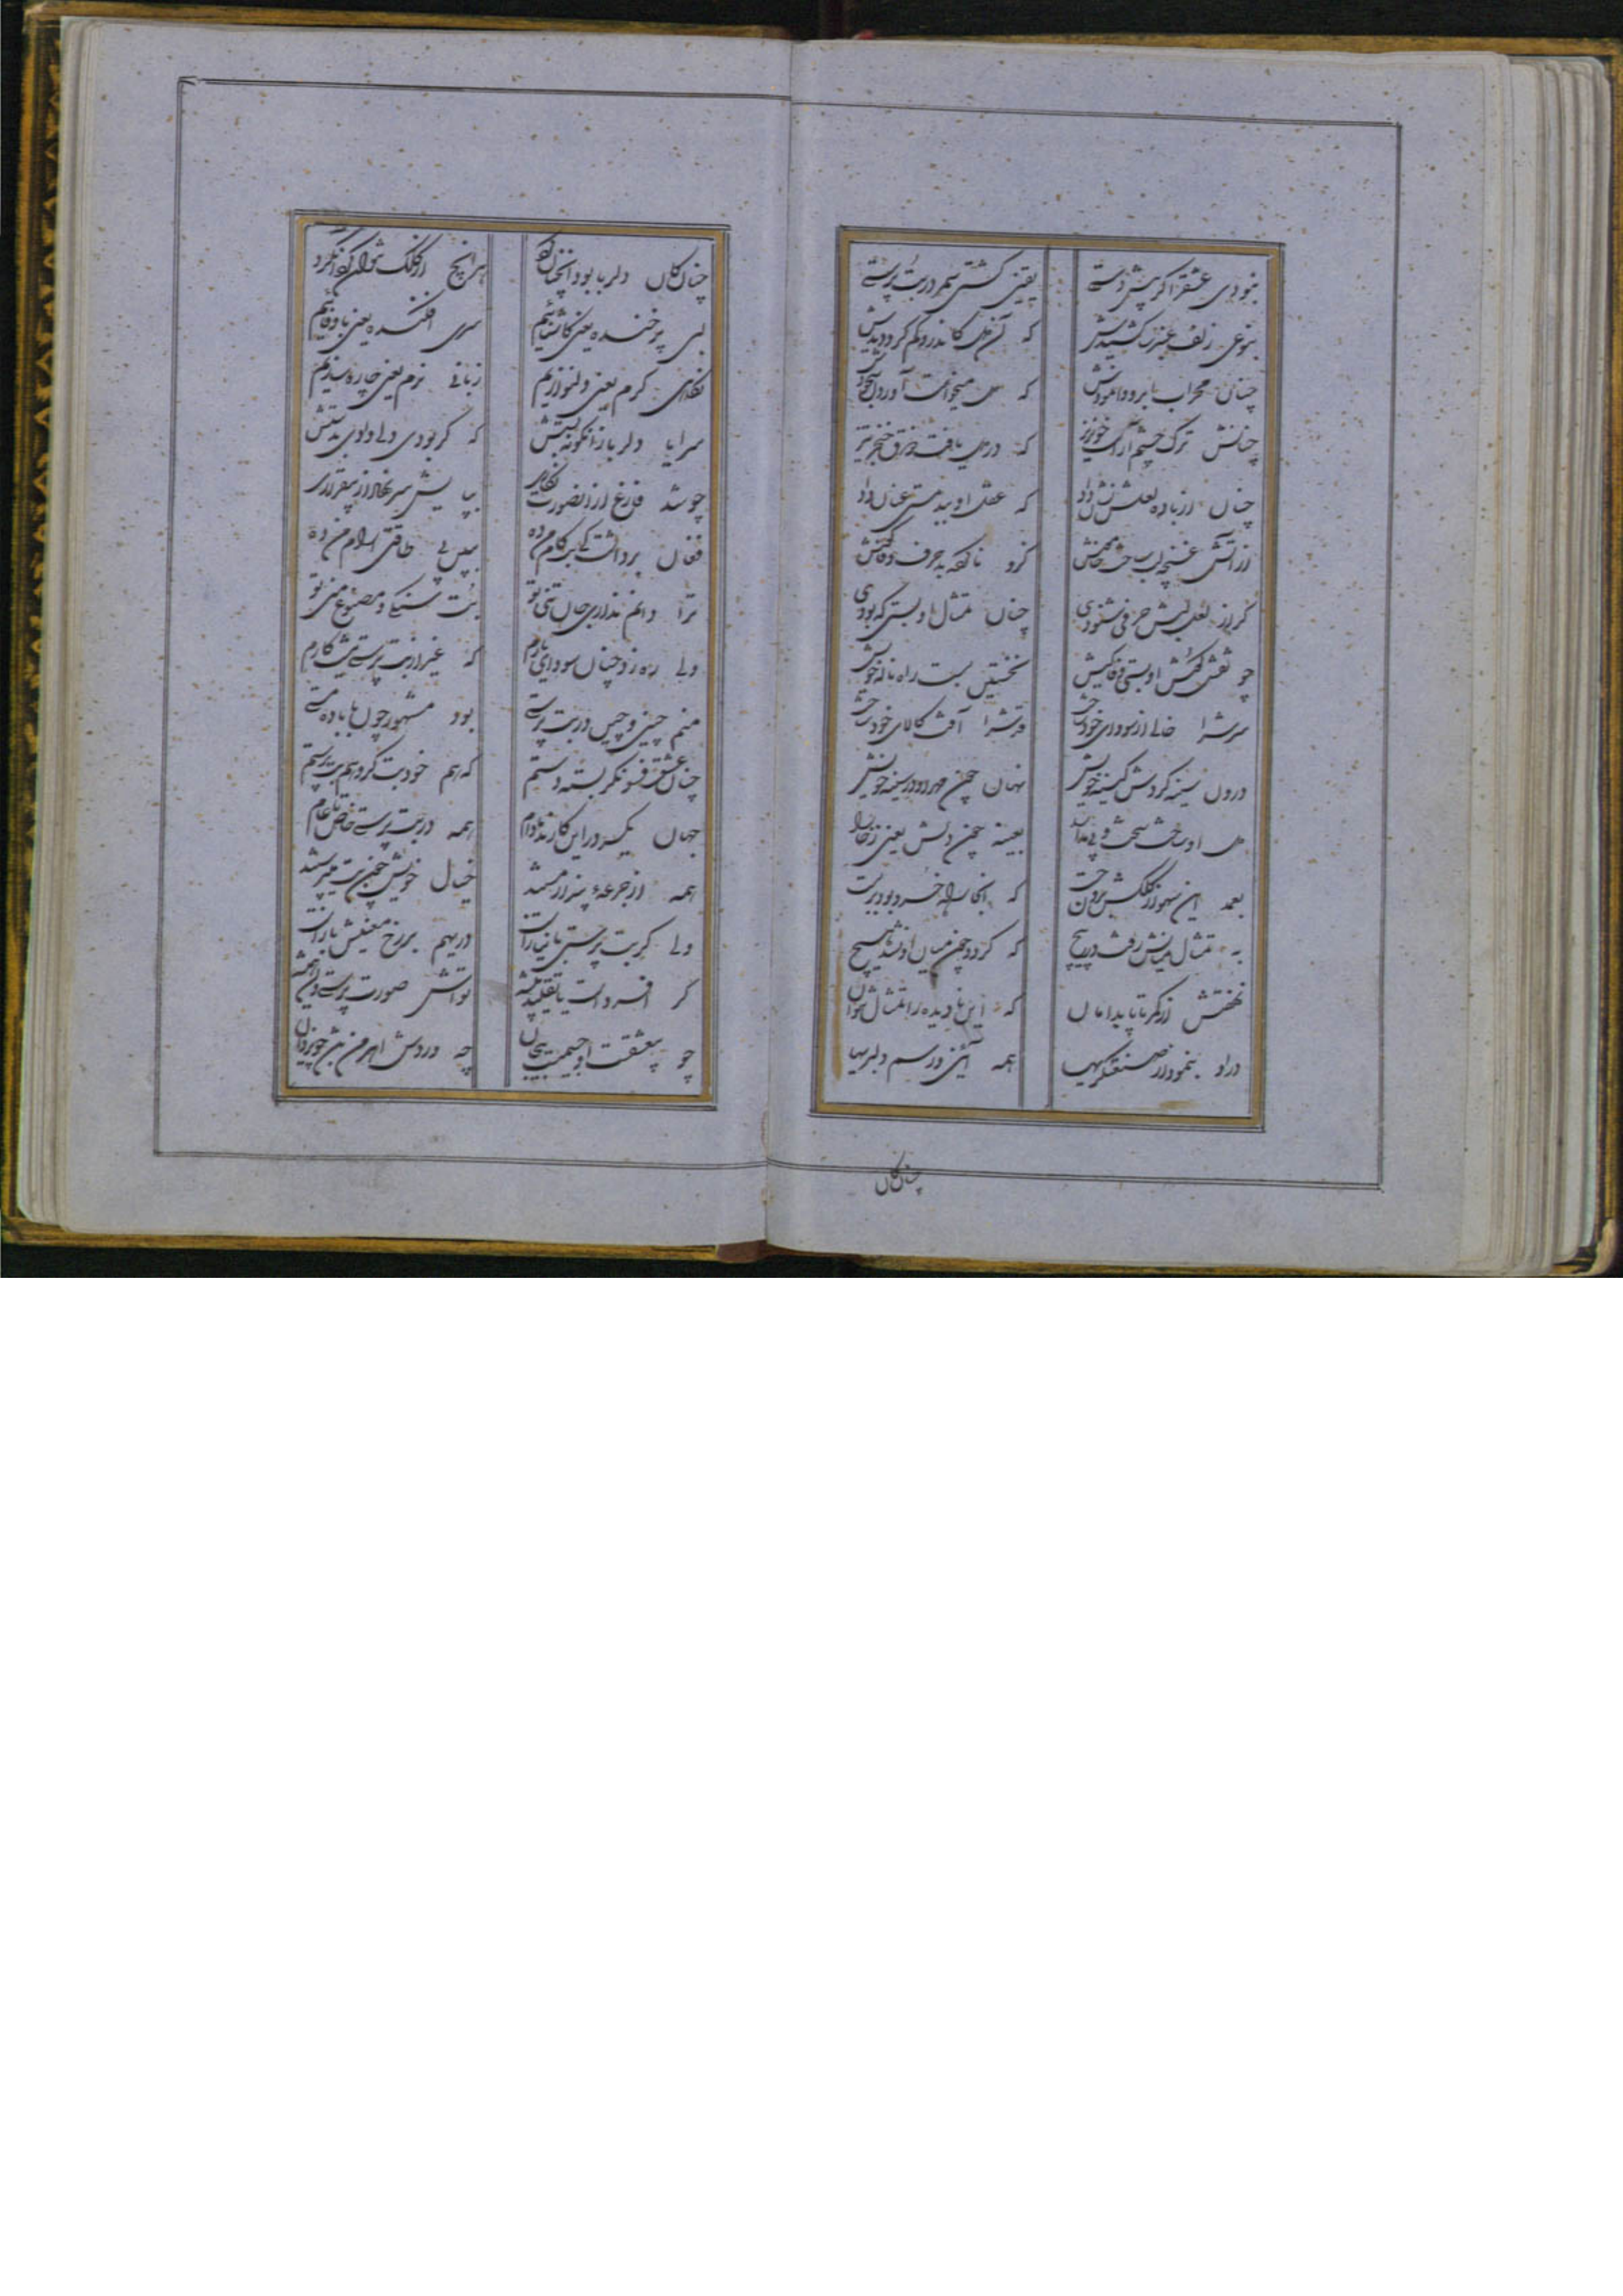 نبودی عشقرا گر پیش دستی
یقین گشتی سمر در بت پرستی
بنوعی زلف عنبر کشیدش
که آن دل کاندرو گم کرد دیدش
چنان محراب ابرو وانمودش
که دل میخواست آوردن سجودش
چنانش ترک چشم آراست خونریز
که در دل یافت ذوق خنجر تیز
چنان از باده لعلش نشان داد
که عقل او بدمستی عنان داد
از آتش غنچه لب ساخت خامش
گر از لعل لبش حرفی شنودی
چنان تمثال او بستی که بودی
چو نقش گوش او بستی وفا کیش
نخستین بست راه ناله خویش
سرشرا خالی از سودای خود ساخت
قدشرا آفت کالای خود ساخت
درون سینه کردش کینه خویش
نهان چون مهر او در سینه خویش
دل او ساخت سخت و بی مدارا
بعینه چون دلش یعنی ز خارا
بعمد این سهو از کلکش برون جست
که آنجا راه خسرو بود در بست
به تمثال میانش رفت در پیچ
که گردد چون میان او نشد هیچ
نهفتش از کمر تا پا بدامان
که این نادیده را تمثال نتوان
در او بنمود از صنعتگریها
همه آئین و رسم دلبریها
چنان کان
چنان کان دلربا بود آنچنان کرد
هر آنچ از کلک نتوان
لبی پر خنده یعنی کاشنائیم
سری افکنده یعنی باوفائیم
نگاهی گرم یعنی دلنوازیم
زبانی نرم یعنی چاره سازیم
سراپا دلربا زانگونه بستش
که گر بودی دلی دادی بدستش
چو شد فارغ از آن صورت نگاری
بپایش سر نهاد از بیقراری
فغان برداشت کای بت کام من ده
ببین بی طاقتی آرام من ده
ترا دانم نداری جان تنی تو
بت سنگی و مصنوع منی تو
ولی ره زد چنان سودای یارم
که غیر از بت پرستی نیست کارم
منم چینی و چین در بت پرستی
بود مشهور چون با باده مستی
چنان عشق فسونگر بسته دستم
که هم خود بت گر و هم بت پرستم
جهان یکسر در این کارند مادام
همه در بت پرستی خاص تا عام
همه از جرعه پندار مستند
خیال خویشتن بت میپرستند
ولی گر بت پرستی با نیاز است
دری هم بر رخ معنیش باز است
گر افسرده است یا تقلید پیشه
بود آتش صورت پرستی دان همیشه
چو بیعشقست او جسمیست بیجان
چه در دوش اهرمن بین چو یزدان